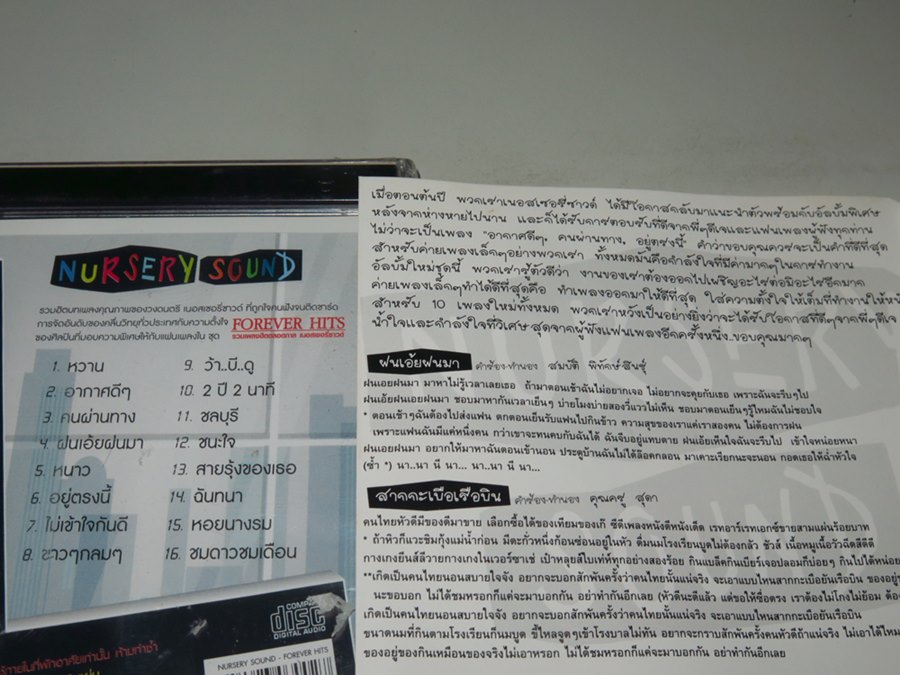 NURSERY SOUND
รวมฮิตบทเพลงคุณภาพของวงดนตรี เนอสเซอรี่ซาวด์ ที่ถูกใจคนฟังจนติดชาร์ต
การจัดอันดับของคลื่นวิทยุทั่วประเทศกับความตั้งใจ FOREVER HITS
ของศิลปินที่มอบความพิเศษให้กับแฟนเพลงใน ชุด รวมเพลงฮิตตลอดกาล เนอสเซอรี่ซาวด์
1. หวาน
2. อากาศดีๆ
3. คนผ่านทาง
4. ฝนเอ้ยฝนมา
5. หนาว
6. อยู่ตรงนี้
7. ไม่เข้าใจกันดี
8. ขาวๆกลมๆ
9. ว้า..บี..ดู
10. 2 ปี 2 นาที
11. ชลบุรี
12. ชนะใจ
13. สายรุ้งของเธอ
14. ฉันทนา
15. หอยนางรม
16. ชมดาวชมเดือน
COMPACT
disc
DIGITAL AUDIO
NURSERY SOUND - FOREVER HITS
ใช้ภายในที่พักอาศัยเท่านั้น ห้ามทำซ้ำ
เมื่อตอนต้นปี พวกเราเนอสเซอรี่ซาวด์ ได้มีโอกาสกลับมาแนะนำตัวพร้อมกับอัลบั้มพิเศษ
หลังจากห่างหายไปนาน และก็ได้รับการตอบรับที่ดีจากพี่ๆดีเจและแฟนเพลงผู้ฟังทุกท่าน
ไม่ว่าจะเป็นเพลง "อากาศดีๆ, คนผ่านทาง, อยู่ตรงนี้" คำว่าขอบคุณควรจะเป็นคำที่ดีที่สุด
สำหรับค่ายเพลงเล็กๆอย่างพวกเรา ทั้งหมดมันคือกำลังใจที่มีค่ามากๆในการทำงาน
อัลบั้มใหม่ชุดนี้ พวกเรารู้ตัวดีว่า งานของเราต้องออกไปเผชิญอะไรต่อมิอะไรอีกมาก
ค่ายเพลงเล็กๆทำได้ดีที่สุดคือ ทำเพลงออกมาให้ดีที่สุด ใส่ความตั้งใจให้เต็มที่ทำงานให้หนั
สำหรับ 10 เพลงใหม่ทั้งหมด พวกเราหวังเป็นอย่างยิ่งว่าจะได้รับโอกาสที่ดีๆจากพี่ๆดีเจ
น้ำใจและกำลังใจที่วิเศษสุดจากผู้ฟังแฟนเพลงอีกครั้งหนึ่ง..ขอบคุณมากๆ
ฝนเอ้ยฝนมา คำร้อง-ทำนอง สมบัติ พิทักษ์สินธุ์
ฝนเอ้ยฝนมา มาหาไม่รู้เวลาเลยเธอ ถ้ามาตอนเช้าฉันไม่อยากเจอ ไม่อยากจะคุยกับเธอ เพราะฉันจะรีบๆไป
ฝนเอ้ยฝนเอยฝนมา ชอบมาหากันเวลาเย็นๆ บ่ายโมงบ่ายสองวี่แววไม่เห็น ชอบมาตอนเย็นๆรู้ไหมฉันไม่ชอบใจ
* ตอนเช้าๆฉันต้องไปส่งแฟน ตกตอนเย็นรับแฟนไปกินข้าว ความสุขของเราแค่เราสองคน ไม่ต้องการฝน
เพราะแฟนฉันมีแค่หนึ่งคน กว่าเขาจะทนคบกับฉันได้ ฉันจีบอยู่แทบตาย ฝนเอ้ยเห็นใจฉันจะรีบไป เข้าใจหน่อยหนา
ฝนเอ้ยฝนมา อยากให้มาหาฉันตอนเข้านอน ประตูบ้านฉันไม่ได้ล็อคกลอน มาเคาะเรียกนะจะนอน กอดเธอให้ฉ่ำหัวใจ
(ซ้ำ *) นา..นา นี นา... นา..นา นี นา...
สากกะเบือเรือบิน คำร้อง-ทำนอง คุณครู สุดา
คนไทยหัวดีมีของดีมาขาย เลือกซื้อได้ของเทียมของเก๊ ซีดีเพลงหนังดีหนังเด็ด เรทอาร์เรทเอกซ์ขายสามแผ่นร้อยบาท
* ถ้าหิวก็แวะชิมกุ้งแม่น้ำก่อน มีตะกั่วหนึ่งก้อนซ่อนอยู่ในหัว ดื่มนมโรงเรียนบูดไม่ต้องกลัว ชัวส์ เนื้อหมูเนื้อวัวฉีดสีดีดี
กางเกงยีนส์ลีวายกางเกงในเวอร์ซาเช่ เป๋าหลุยส์ไบเท่ห์ทุกอย่างสองร้อย กินแบล็คกินเบียร์เจอปลอมก็บ่อยๆ กินไปได้หน่อย
**เกิดเป็นคนไทยนอนสบายใจจัง อยากจะบอกสักพันครั้งว่าคนไทยนั้นแน่จริง จะเอาแบบไหนสากกะเบือยันเรือบิน ของอยู่
นะขอบอก ไม่ได้ชมหรอกก็แค่จะมาบอกกัน อย่าทำกันอีกเลย (หัวดีนะดีแล้ว แต่ขอให้ซื่อตรง เราต้องไม่โกงไม่ย้อม ต้อ
เกิดเป็นคนไทยนอนสบายใจจัง อยากจะบอกสักพันครั้งว่าคนไทยนั้นแน่จริง จะเอาแบบไหนสากกะเบือยันเรือบิน
ขนาดนมที่กินตามโรงเรียนก็นมบูด ขี้ไหลจูดๆเข้าโรงบาลไม่ทัน อยากจะกราบสักพันครั้งคนหัวดีถ้าแน่จริง ไม่เอาได้ไหม
ของอยู่ของกินเหมือนของจริงไม่เอาหรอก ไม่ได้ชมหรอกก็แค่จะมาบอกกัน อย่าทำกันอีกเลย